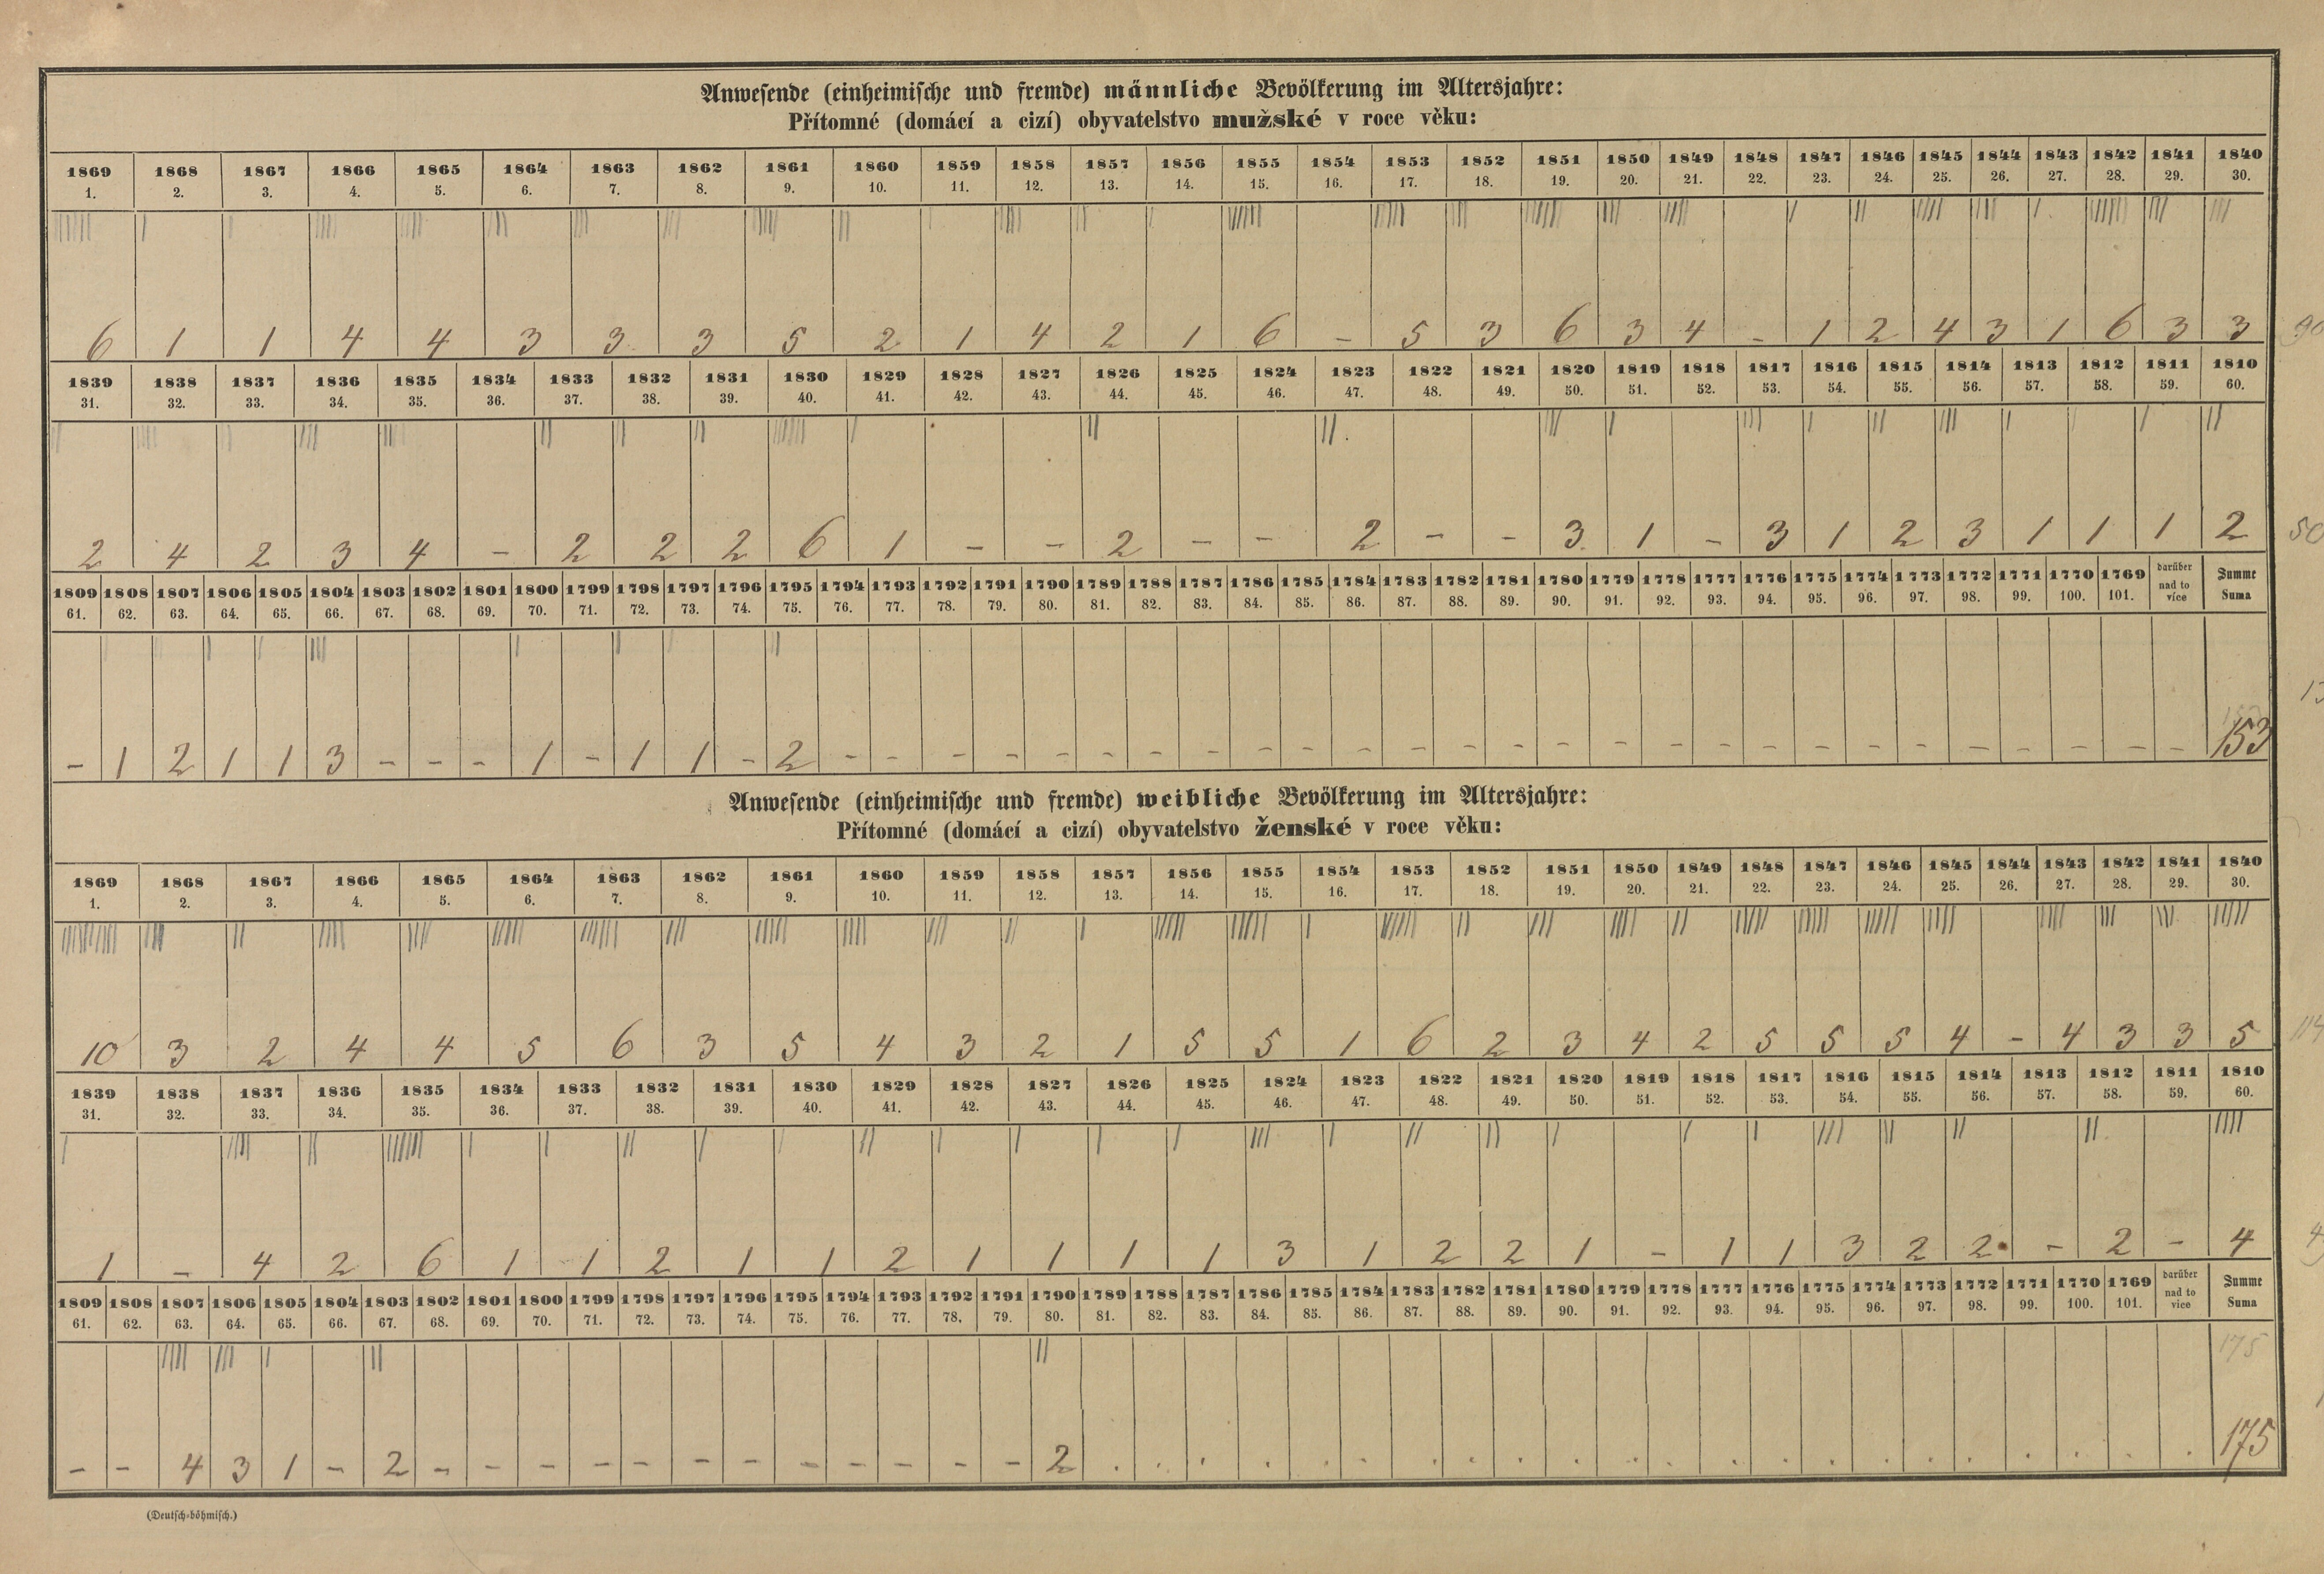 Anwesende (einheimische und fremde) männliche Bevölkerung im Altersjahre:
Přítomné (domácí a cizí) obyvatelstvo mužské v roce věku:
1869 1868 1867 1866 1865 1864 1863 1862 1861 1860 1859 1858 1857 1856 1855 1854 1853 1852 1851 1850 1849 1848 1847 1846 1845 1844 1843 1842 1841 1840
1. 2. 3. 4. 5. 6. 7. 8. 9. 10. 11. 12. 13. 14. 15. 16. 17. 18. 19. 20. 21. 22. 23. 24. 25. 26. 27. 28. 29. 30.
6 1 1 4 4 3 3 3 5 2 1 4 2 1 6 - 5 3 6 3 4 - 1 2 4 3 1 6 3 3 90
1839 1838 1837 1836 1835 1834 1833 1832 1831 1830 1829 1828 1827 1826 1825 1824 1823 1822 1821 1820 1819 1818 1817 1816 1815 1814 1813 1812 1811 1810
31. 32. 33. 34. 35. 36. 37. 38. 39. 40. 41. 42. 43. 44. 45. 46. 47. 48. 49. 50. 51. 52. 53. 54. 55. 56. 57. 58. 59. 60.
2 4 2 3 4 - 2 2 2 6 1 - - 2 - - 2 - - 3 1 - 3 1 2 3 1 1 1 2 50
1809 1808 1807 1806 1805 1804 1803 1802 1801 1800 1799 1798 1797 1796 1795 1794 1793 1792 1791 1790 1789 1788 1787 1786 1785 1784 1783 1782 1781 1780 1779 1778 1777 1776 1775 1774 1773 1772 1771 1770 1769 darüber nad to více Summe Suma
61. 62. 63. 64. 65. 66. 67. 68. 69. 70. 71. 72. 73. 74. 75. 76. 77. 78. 79. 80. 81. 82. 83. 84. 85. 86. 87. 88. 89. 90. 91. 92. 93. 94. 95. 96. 97. 98. 99. 100. 101.
- 1 2 1 1 3 - - - 1 - 1 1 - 2 - - - - - - - - - - - - - - - - - - - - - - - - - - - 153
Anwesende (einheimische und fremde) weibliche Bevölkerung im Altersjahre:
Přítomné (domácí a cizí) obyvatelstvo ženské v roce věku:
1869 1868 1867 1866 1865 1864 1863 1862 1861 1860 1859 1858 1857 1856 1855 1854 1853 1852 1851 1850 1849 1848 1847 1846 1845 1844 1843 1842 1841 1840
1. 2. 3. 4. 5. 6. 7. 8. 9. 10. 11. 12. 13. 14. 15. 16. 17. 18. 19. 20. 21. 22. 23. 24. 25. 26. 27. 28. 29. 30.
10 3 2 4 4 5 6 3 5 4 3 2 1 5 5 1 6 2 3 4 2 5 5 5 4 - 4 3 3 5 114
1839 1838 1837 1836 1835 1834 1833 1832 1831 1830 1829 1828 1827 1826 1825 1824 1823 1822 1821 1820 1819 1818 1817 1816 1815 1814 1813 1812 1811 1810
31. 32. 33. 34. 35. 36. 37. 38. 39. 40. 41. 42. 43. 44. 45. 46. 47. 48. 49. 50. 51. 52. 53. 54. 55. 56. 57. 58. 59. 60.
1 - 4 2 6 1 1 2 1 1 2 1 1 1 1 3 1 2 2 1 - 1 1 3 2 2 - 2 - 4
1809 1808 1807 1806 1805 1804 1803 1802 1801 1800 1799 1798 1797 1796 1795 1794 1793 1792 1791 1790 1789 1788 1787 1786 1785 1784 1783 1782 1781 1780 1779 1778 1777 1776 1775 1774 1773 1772 1771 1770 1769 darüber nad to více Summe Suma
61. 62. 63. 64. 65. 66. 67. 68. 69. 70. 71. 72. 73. 74. 75. 76. 77. 78. 79. 80. 81. 82. 83. 84. 85. 86. 87. 88. 89. 90. 91. 92. 93. 94. 95. 96. 97. 98. 99. 100. 101.
175
- - 4 3 1 - 2 - - - - - - - - - - - - 2 . . . . . . . . . . . . . . . . . . . . . . 175
(Deutsch-böhmisch.)